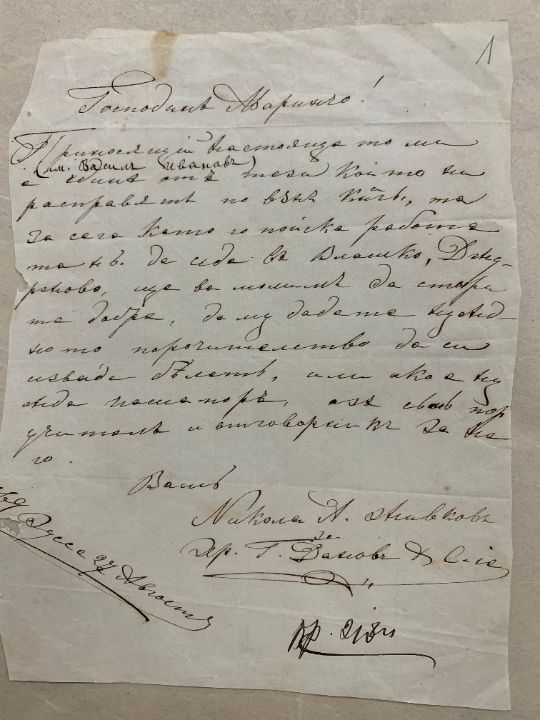 1
Господинъ Маринчо!
Приносящій настояще то ми
(им. Василъ Ивановъ)
е единъ отъ тези който ни
расправятъ по вънъ книгы, та
за сега като го поиска работа
та му да иде въ Влашко, Джур-
джово, ще ва молимъ да стори
те добре, да му дадете нужд
ното поручителство да си
извади билетъ, или ако е ну
жда пасапорь, азъ съмъ пор
учитель и отговорникъ за не
го.
Вашъ
Никола А. Живковъ
за
Хр. Г. Дановъ & С-ie
Русса 27 Августъ